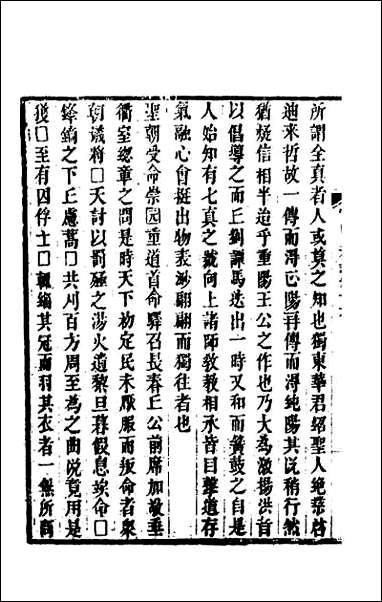 所謂全真者人或莫之知也獨東華君紹聖人絶業啓
迪來哲故一傳而得正陽再傳而得純陽其説稍行然
猶疑信相半迨乎重陽王公之作也乃大為激揚洪音
以倡導之而丘劉譚馬迭出一時又和而簧鼓之自是
人始知有七真之號向上諸師敎敎相承皆目擊道存
氣融心會挺出物表渺翩翩而獨徃者也
聖朝受命崇固重道首命驛召長春丘公前席加敬垂
衢室總章之問是時天下初定民未厭服而叛命者衆
朝議將□天討以罰殛之湯火遺黎旦暮假息竢命□
鋒鏑之下丘慮蒿□共刈百方周至為之曲説竟用是
獲□至有囚俘士□輒緇其冠而羽其衣者一無所問